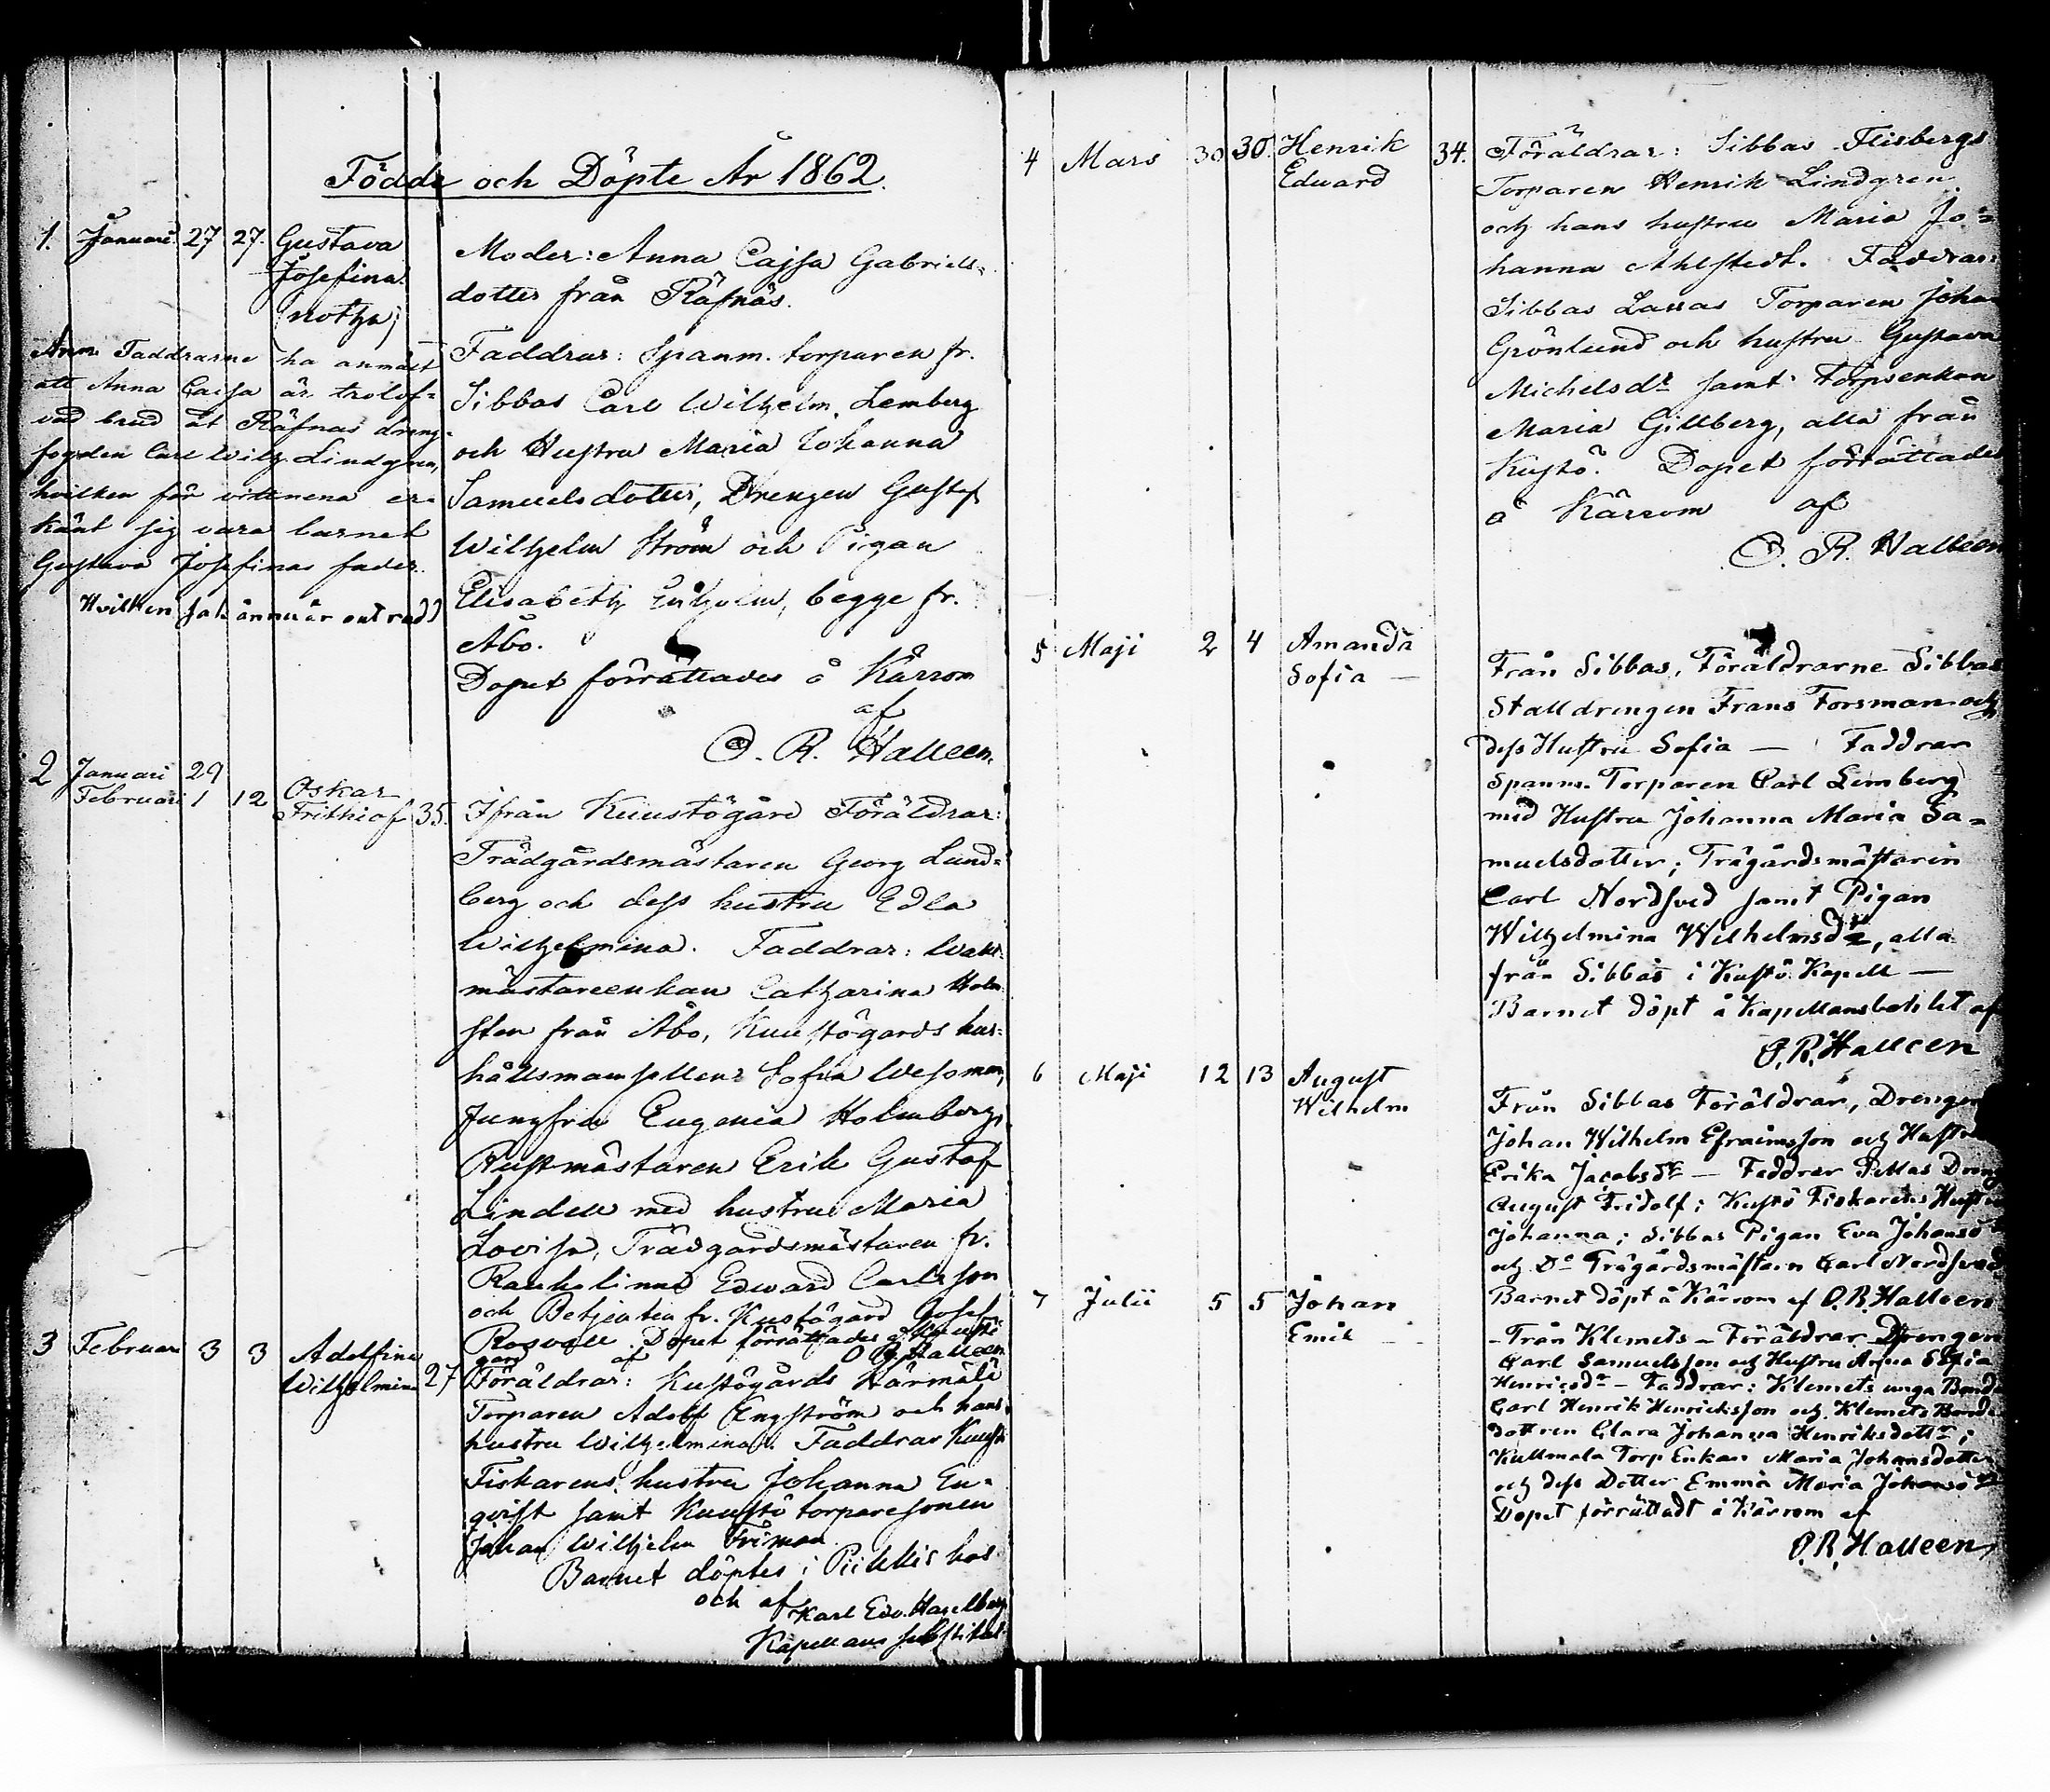 Födde och Döpte År 1862.
1. Januari 27 27. Gustava
Josefina
(notha)
Anm. Faddrarne ha anmält
att Anna Caisa är trolof-
vad brud åt Räfnäs dreng-
fogden Carl Wilh. Lindgren,
hvilken för vittnena er-
känt sig vara barnet
Gustava Josefinas fader.
Hvilken sak ännu är outredd
Moder: Anna Cajsa Gabriels-
dotter från Räfnäs.
Faddrar: Spanm. torparen fr.
Sibbas Carl Wilhelm Lemberg
och Hustru Maria Johanna
Samuelsdotter, Drengen Gustaf
Wilhelm Ström och Pigan
Elisabeth, begge fr.
Åbo.
Dopet förrättades å Kärrom
af
O. R. Halleen.
2 Januari 29
Februari 1 12 Oskar
Frithiof 35.
Ifrån Kuustögård Föräldrar:
Trädgårdsmästaren Georg Lund-
berg och dess hustru Edla
Wilhelmina. Faddrar: Wakt-
mästareenkan Catharina Holm
sten från Åbo, Kuustögårds hus-
hållsmamsellen Sofia Wesoman,
Jungfru Eugenia Holmberg,
Rustmästaren Erik Gustaf
Lindell med hustru Maria
Lovisa, Trädgårdsmästaren fr.
Rauhalinna Edward Carlsson
och Betjenten fr. Kustögård Josef
Rosvall. Dopet förrättades å Kuustö
gård af O R Halleen
3 Februari 3 3 Adolfina
Wilhelmina 27
Föräldrar: Kustögårds Härmälä
Torparen Adolf Engström och hans
hustru Wilhelmina. Faddrar Kuustö
Fiskarens hustru Johanna En-
qvist samt Kuustö torparesonen
Johan Wilhelm Friman.
Barnet döptes i Piikkis hos
och af Karl Edv. Haselberg
Kapellans substitut
4 Mars 30 30. Henrik
Edward 34.
Föräldrar: Sibbas Flisbergs
Torparen Henrik Lindgren
och hans hustru Maria Jo-
hanna Ahlstedt. Faddrar:
Sibbas Lassas Torparen Johan
Grönlund och hustru Gustava
Michelsdr samt Torpenkan
Maria Gillberg, alla från
Kustö. Dopet förrättades
å Kärrom af
O. R. Halleen
5 Maji 2 4 Amanda
Sofia —
Från Sibbas, Föräldrarne Sibbas
Stalldrengen Frans Forsman och
dess Hustru Sofia — Faddrar
Spanm. Torparen Carl Lemberg
med Hustru Johanna Maria Sa-
muelsdotter; Trägårdsmästaren
Carl Nordsved samt Pigan
Wilhelmina Wilhelmsdr, alla
från Sibbas i Kustö Kapell —
Barnet döpt å Kapellansbohlet af
O. R. Halleen
6 Maji 12 13 August
Wilhelm
Från Sibbas Föräldrar, Drengen
Johan Wilhelm Efraimsson och Hustru
Erika Jacobsdr — Faddrar Dreng
August Fridolf; Kustö Fiskarens Hustru
Johanna; Sibbas Pigan Eva Johansdr
och Do Trägårdsmästarn Carl Nordsved
Barnet döpt å Kärrom af O. R. Halleen
7 Julii 5 5 Johan
Emil —
– Från Klemets – Föräldrar Drengen
Carl Samuelsson och Hustru Anna Sofia
Henricsdr – Faddrar: Klemets unga Bonde
Carl Henrik Henricksson och Klemets Bonde
dottren Clara Johanna Henriksdottr;
Kullmala Torp Enkan Maria Johansdotter
och dess Dotter Emma Maria Johansdr
Dopet förrättadt å Kärrom af
O. R. Halleen